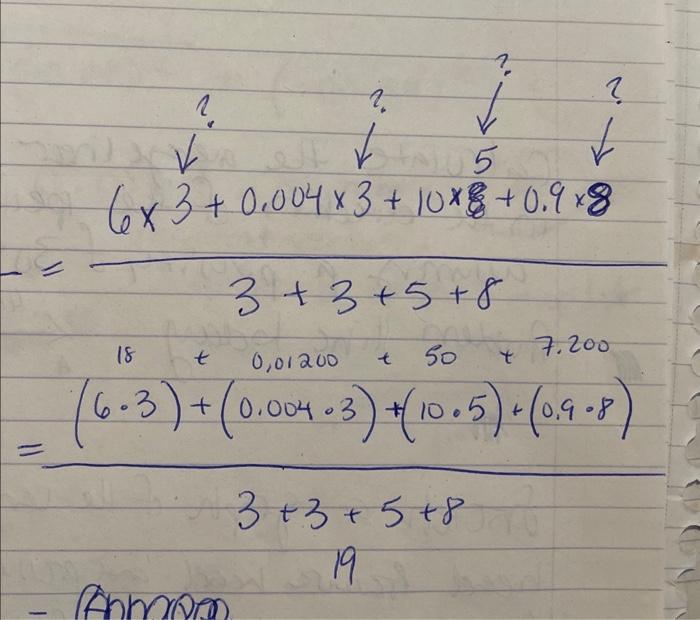 ? ? ? ?
5
6 × 3 + 0.004 × 3 + 10 × 8 + 0.9 × 8
=
3 + 3 + 5 + 8
18 + 0,01200 + 50 + 7.200
= (6·3) + (0.004·3) + (10·5) + (0.9·8)
3 + 3 + 5 + 8
19